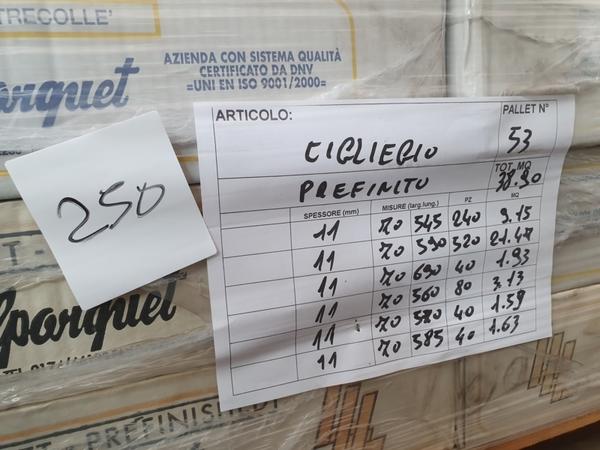 TRECOLLE'
AZIENDA CON SISTEMA QUALITÀ
CERTIFICATO DA DNV
=UNI EN ISO 9001/2000=
parquet
250
ARTICOLO:
PALLET N°
CIGLIEGIO
53
PREFINITO
TOT. MQ
38.90
SPESSORE (mm) MISURE (larg.lung.) PZ MQ
11 70 545 240 9.15
11 70 590 520 21.47
11 70 690 40 1.93
11 70 560 80 3.13
11 70 580 40 1.59
11 70 585 40 1.63
parquet
PREFINISHED